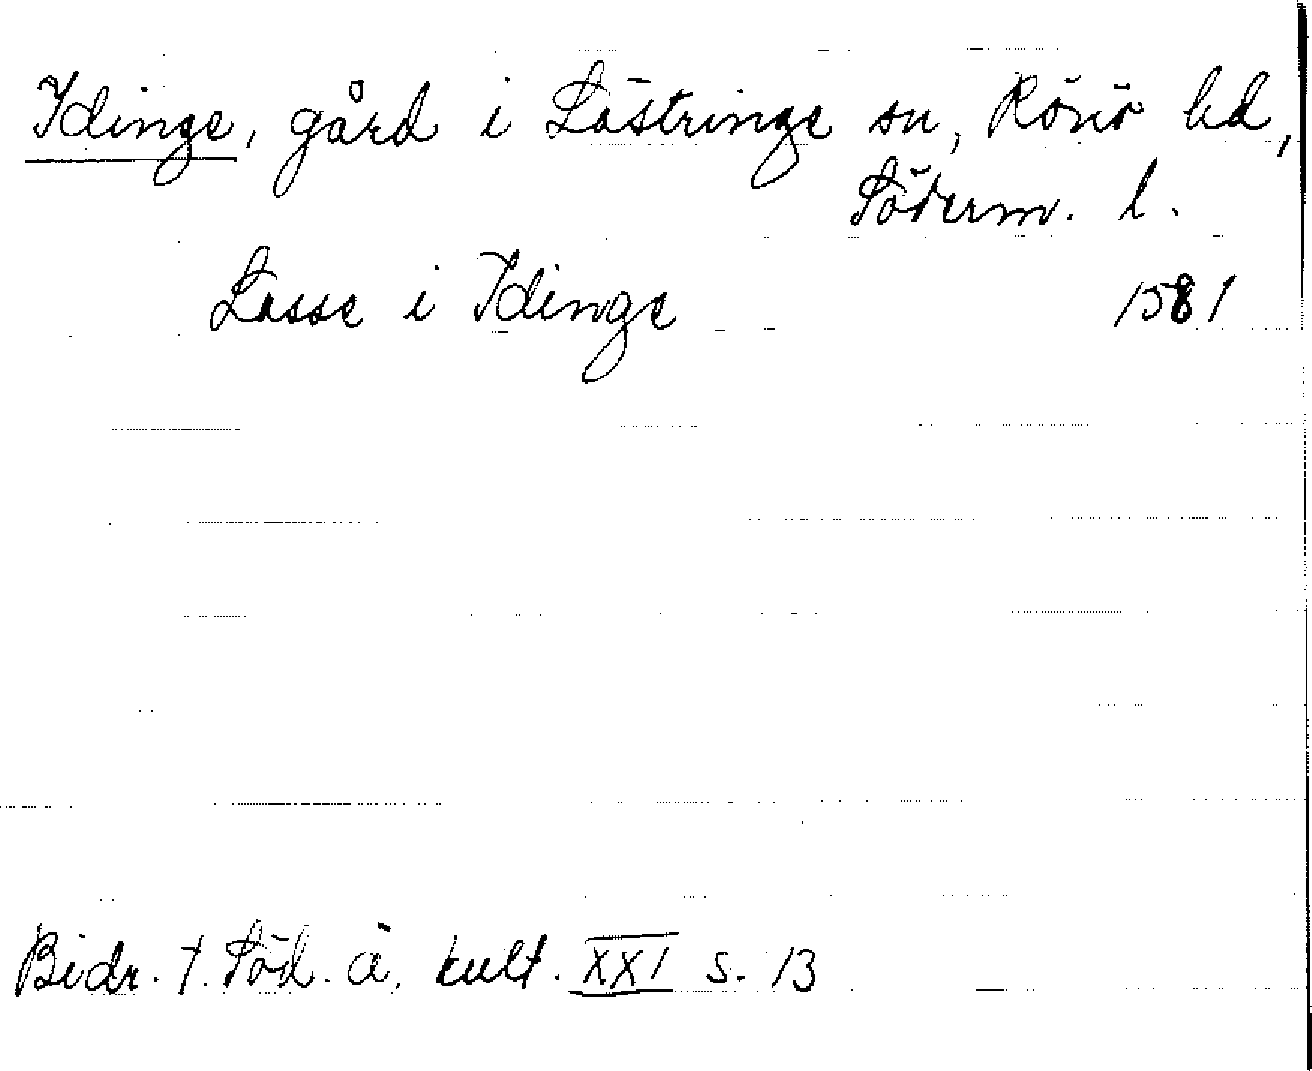 Idinge, gård i Lästringe sn, Rönö hd,
Söderm. l.
Lasse i Idinge 1581
Bidr. t. Söd. ä. kult. XXI s. 13